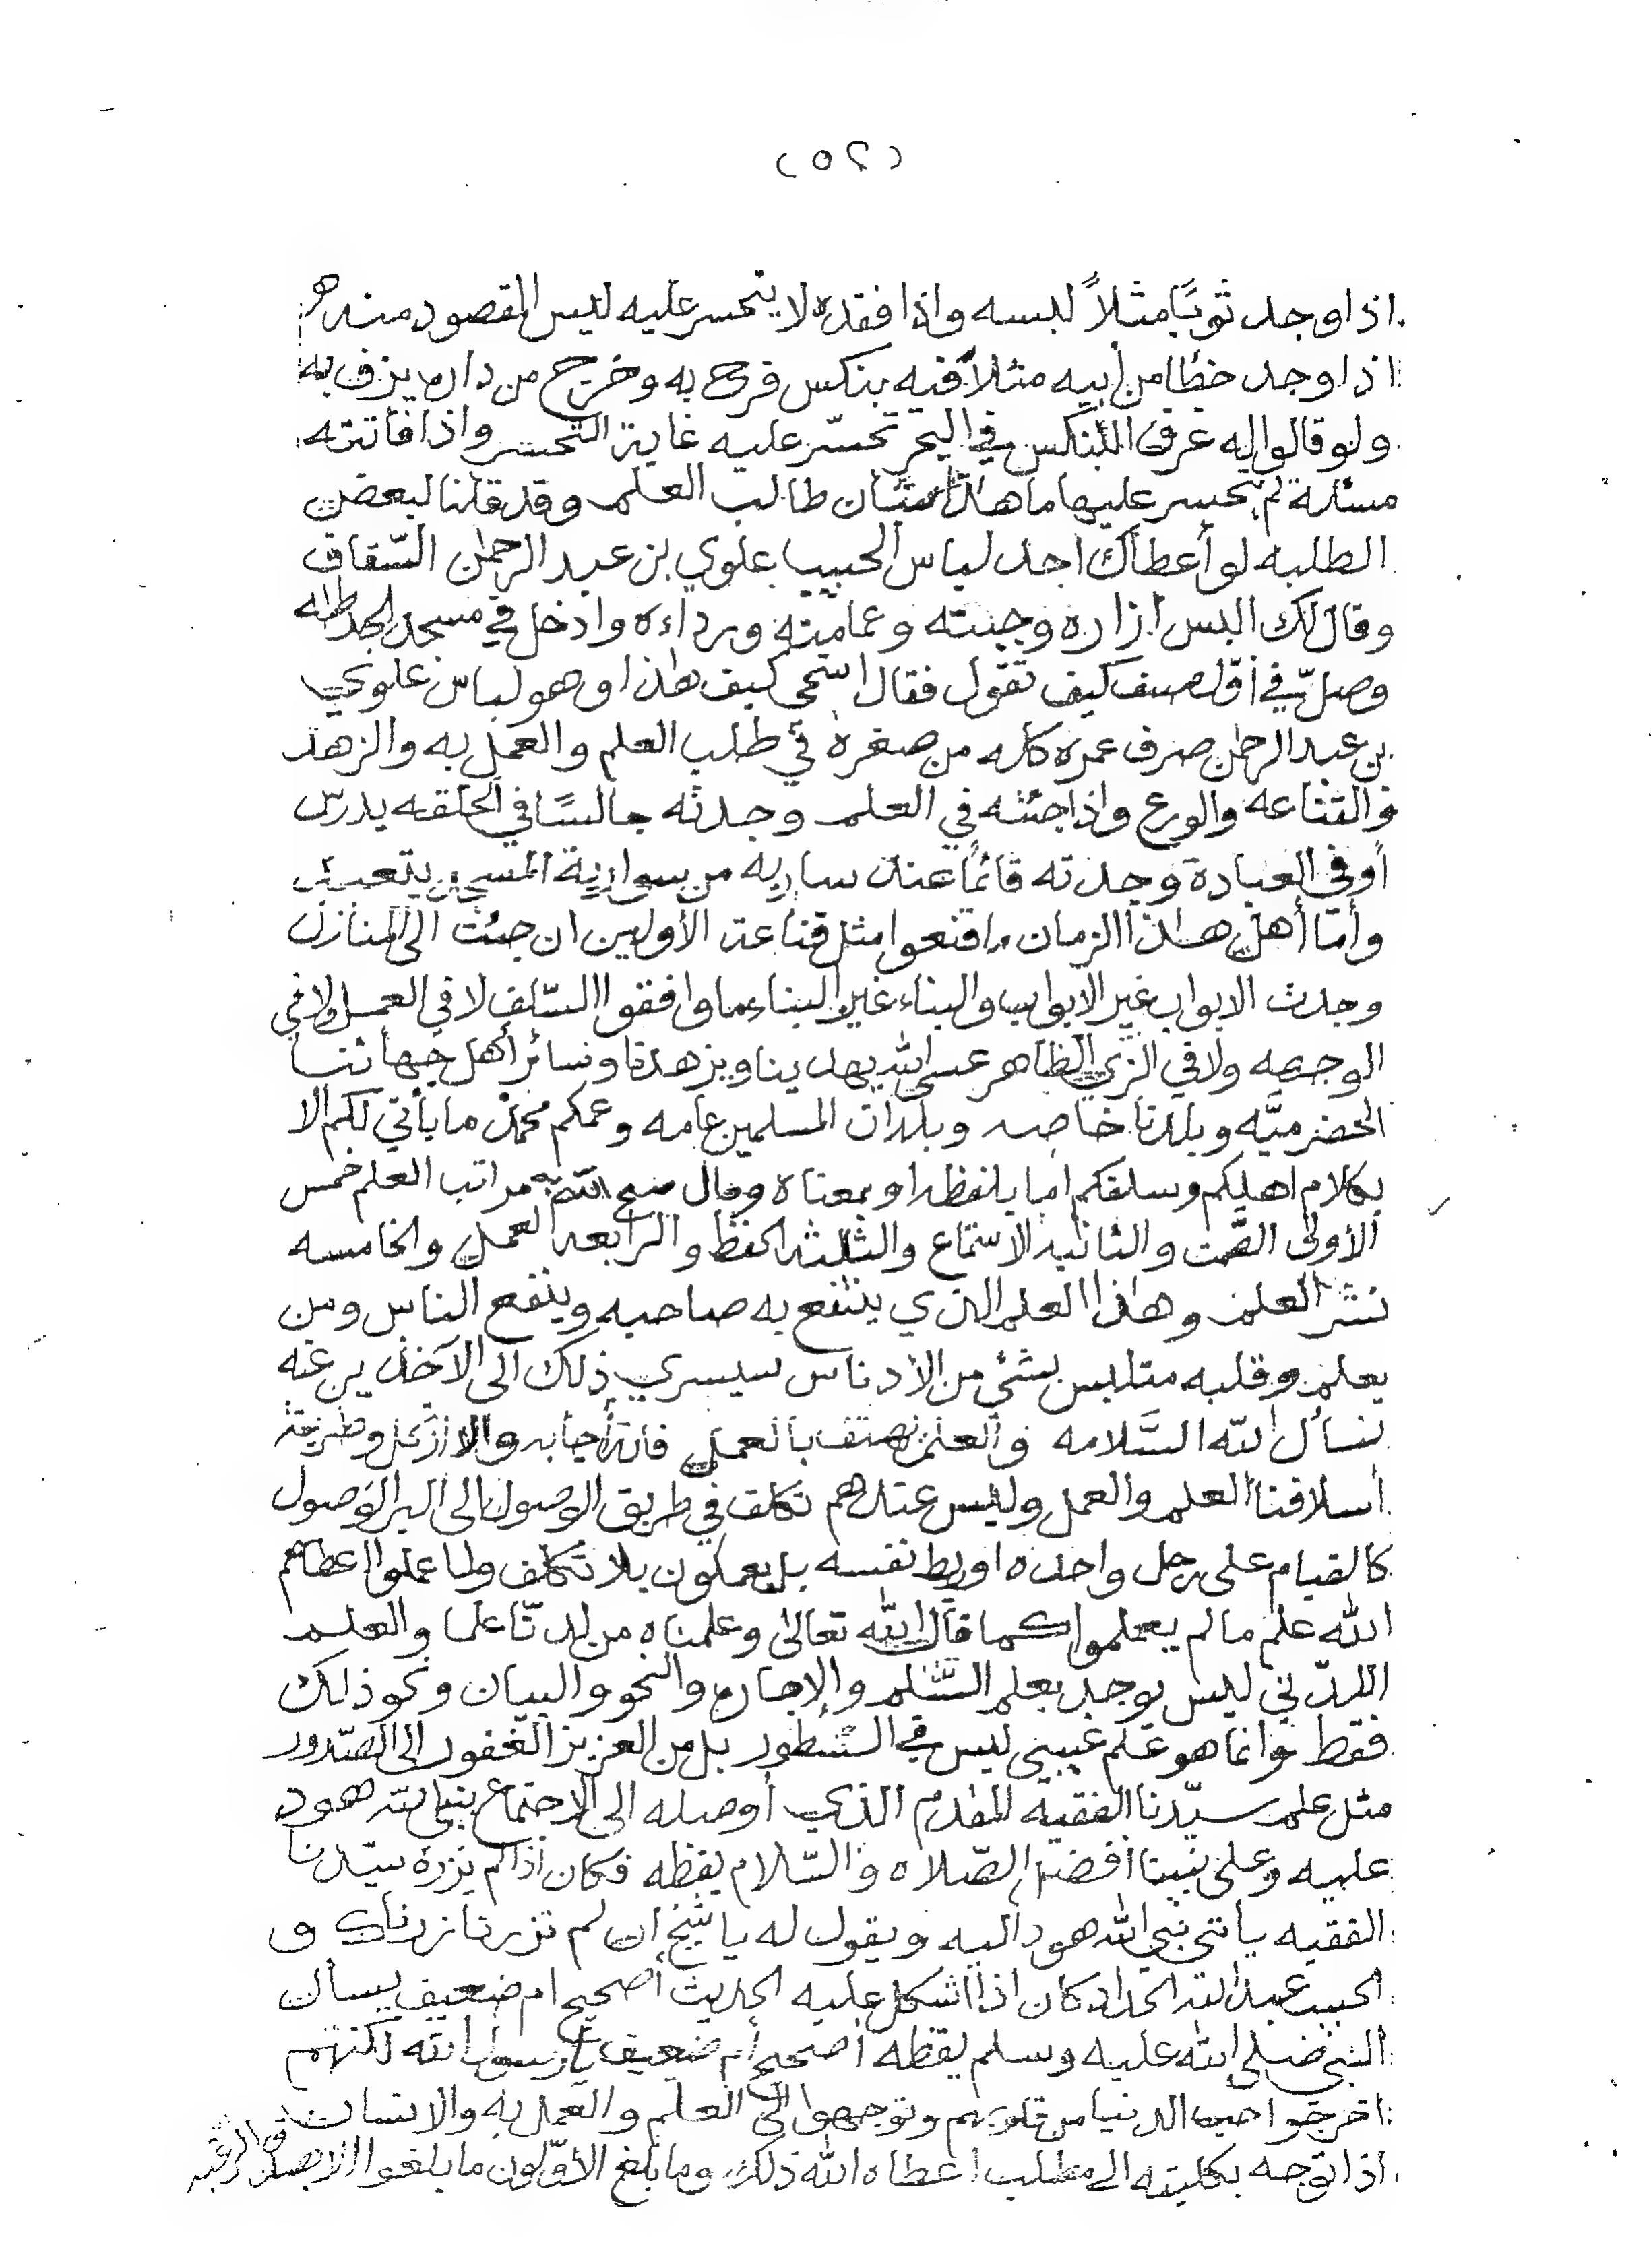 (٥٢)
اذا وجد ثوبًا مثلاً لبسه واذا فقده لا يتحسر عليه ليس المقصود منه هو
اذا وجد خطًا من أبيه مثلاً فيه بنكس فرح به وخرج من داره يزف به
ولو قالوا له غرق البنكس في البحر تحسّر عليه غاية التحسر واذا فاتته
مسئلة لم يتحسر عليها ما هذا شان طالب العلم وقد قلنا لبعض
الطلبه لو أعطاك احد لباس الحبيب علوي بن عبد الرحمٰن السّقاف
وقال لك البس ازاره وجبته وعمامته ورداءه وادخل في مسجد الجد طه
وصلّ في أوّل صف كيف تقول فقال استحي كيف هٰذا وهو لباس علوي
بن عبد الرحمٰن صرف عمره كله من صغره في طلب العلم والعمل به والزهد
والقناعه والورع واذا جئته في العلم وجدته جالسًا في الحلقه يدرّس
أو في العبادة وجدته قائمًا عند ساريه من سوارية المسجد يتعبد
وأمّا أهل هٰذا الزمان ما قنعوا مثل قناعة الأولين ان جئت الى المنازل
وجدت الابواب غير الابواب والبناء غير البناء ما وافقوا السّلف لا في العمل ولا في
الوجهه ولا في الزي الظاهر عسى الله يهدينا ويزهدنا وسائر أهل جهاتنا
الحضرميّه وبلدنا خاصه وبلدان المسلمين عامه وعمكم محمد ما يأتي لكم الا
بكلام اهلكم وسلفكم اما بلفظه او بمعناه وقال متع الله به مراتب العلم خمس
الأولى الصّمت والثانيه الاستماع والثالثه الحفظ والرابعه العمل والخامسه
نشر العلم وهٰذا العلم الذي ينتفع به صاحبه وينفع الناس ومن
يعلم وقلبه متلبس بشئ من الأدناس سيسري ذلك الى الآخذين عنه
نسأل الله السّلامه والعلم يهتف بالعمل فان أجابه والا ارتحل وطريقة
أسلافنا العلم والعمل وليس عندهم تكلف في طريق الوصول الى البر الوصول
كالقيام على رجل واحده او ربط نفسه بل يعملون بلا تكلف ولما عملوا اعطاهم
الله علم ما لم يعلموا كما قال الله تعالى وعلمناه من لدنّا علما والعلم
اللدنّي ليس يوجد بعلم السّلم والإجاره والنحو والبيان ونحو ذلك
فقط وانما هو علم غيبي ليس في السّطور بل من العزيز الغفور الى الصّدور
مثل علم سيّدنا الفقيه المقدم الذي أوصله الى الاجتماع بنبي الله هود
عليه وعلى نبينا أفضل الصّلاه والسّلام يقظه فكان اذا لم يزره سيّدنا
الفقيه يأتي نبي الله هود اليه ويقول له يا شيخ ان لم تزرنا زرناك و
الحبيب عبد الله الحداد كان اذا اشكل عليه الحديث أصحيح ام ضعيف يسأل
النبي صلى الله عليه وسلم يقظه أصحيح أم ضعيف يا رسول الله لكنهم
اخرجوا حب الدنيا من قلوبهم وتوجهوا الى العلم والعمل به والانسان
اذا توجه بكليته الى مطلب اعطاه الله ذلك وما بلغ الأوّلون ما بلغوا الا بصدق الرغبه